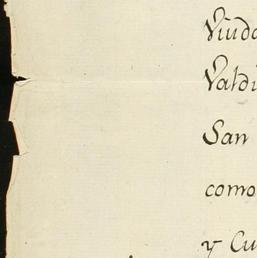 Viuda
Valdi
San
como
y Cu